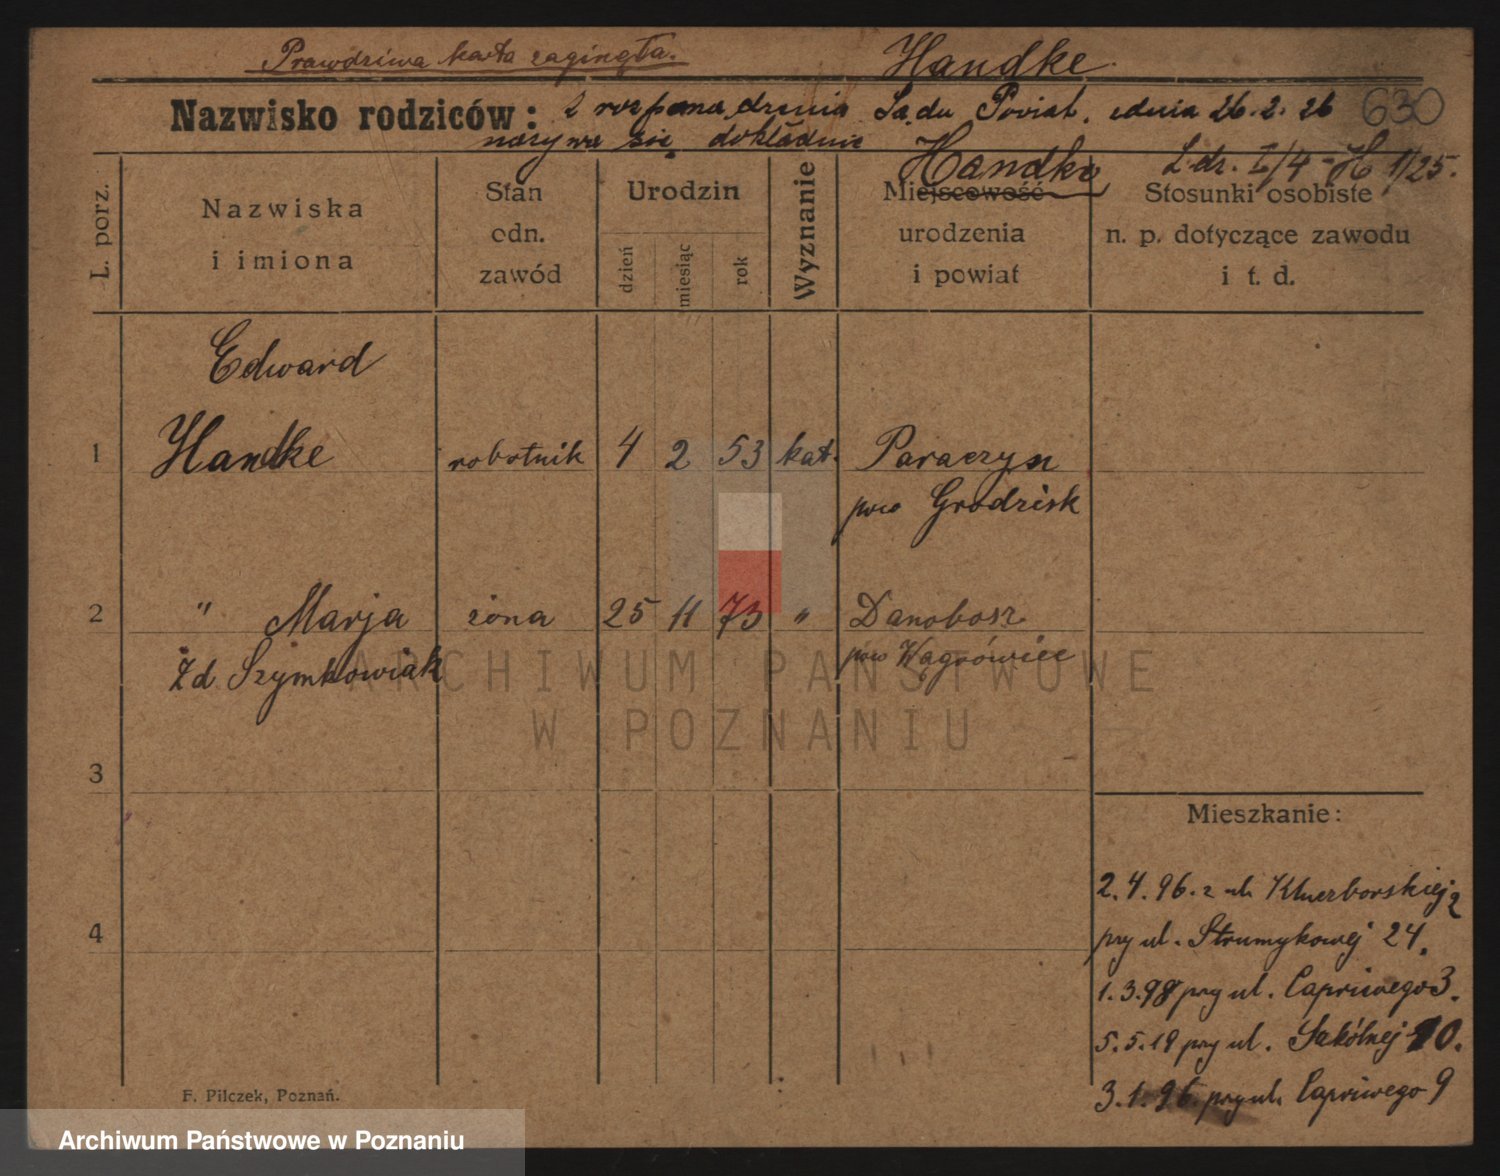 Prawdziwa karta zaginęła.
Handke.
Nazwisko rodziców: z rozpona dzenia Sądu Powiat. z dnia 26.2.26
630
nazywa się dokładnie
Handke
L. dz. I/4 - H 1/25.
L. porz.
Nazwiska
i imiona
Stan
odn.
zawód
Urodzin
dzień
miesiąc
rok
Wyznanie
Miejscowość
urodzenia
i powiat
Stosunki osobiste
n. p. dotyczące zawodu
i t. d.
Edward
1 Handke robotnik 4 2 53 kat. Paraczyn
pow Grodzisk
2 " Marja żona 25 11 73 " Danobosz
Żd Szymkowiak pow Wągrówiec
ARCHIWUM PAŃSTWOWE
W POZNANIU
3
Mieszkanie:
2.4.96. z ul. Kluczborskiej 2
4
przy ul. Strumykowej 24.
1.3.98 przy ul. Capriwego 3.
5.5.19 przy ul. Szkólnej 10.
3.1.96 przy ul. Capriwego 9
F. Pilczek, Poznań.
Archiwum Państwowe w Poznaniu